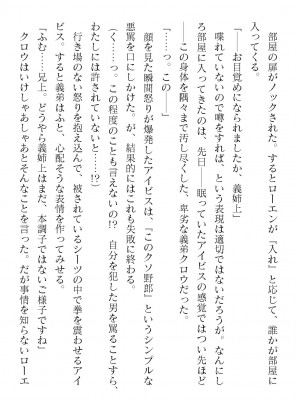 部屋の扉がノックされた。するとローエンが「入れ」と応じて、誰かが部屋に
入ってくる。
「――お目覚めになられましたか、義姉上」
喋れていないので噂をすれば、という表現は適切ではないだろうが。なんにし
ろ部屋に入ってきたのは、先日――眠っていたアイビスの感覚ではつい先ほど
この身体を隅々まで汚し尽くした、卑劣な義弟クロウだった。
「……っ。この――」
顔を見た瞬間怒りが爆発したアイビスは、「このクソ野郎」というシンプルな
悪罵を口にしかけた。が、結果的にはこれも失敗に終わる。
（――っ。この程度のことも言えないの!? 自分を犯した男を罵ることすら、
わたしには許されていないと……!?）
行き場のない怒りを抱え込んで、被されているシーツの中で拳を震わせるアイ
ビス。すると義弟はふと、心配そうな表情を作ってみせる。
「ふむ……兄上。どうやら義姉上はまだ、本調子ではないご様子ですね」
クロウはいけしゃあしゃあとそんなことを言った。だが事情を知らないローエ